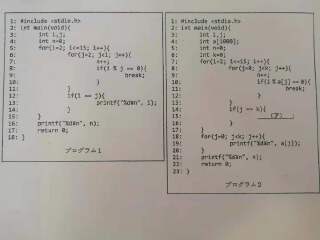 1: #include <stdio.h>
2: int main(void){
3: int i,j;
4: int n=0;
5: for(i=2; i<=15; i++){
6: for(j=2; j<i; j++){
7: n++;
8: if(i % j == 0){
9: break;
10: }
11: }
12: if(i == j){
13: printf("%d¥n", i);
14: }
15: }
16: printf("%d¥n", n);
17: return 0;
18: }
プログラム1
1: #include <stdio.h>
2: int main(void){
3: int i,j;
4: int a[1000];
5: int n=0;
6: int k=0;
7: for(i=2; i<=15; i++){
8: for(j=0; j<k; j++){
9: n++;
10: if(i % a[j] == 0){
11: break;
12: }
13: }
14: if(j == k){
15: (ア)
16: }
17: }
18: for(j=0; j<k; j++){
19: printf("%d¥n", a[j]);
20: }
21: printf("%d¥n", n);
22: return 0;
23: }
プログラム2